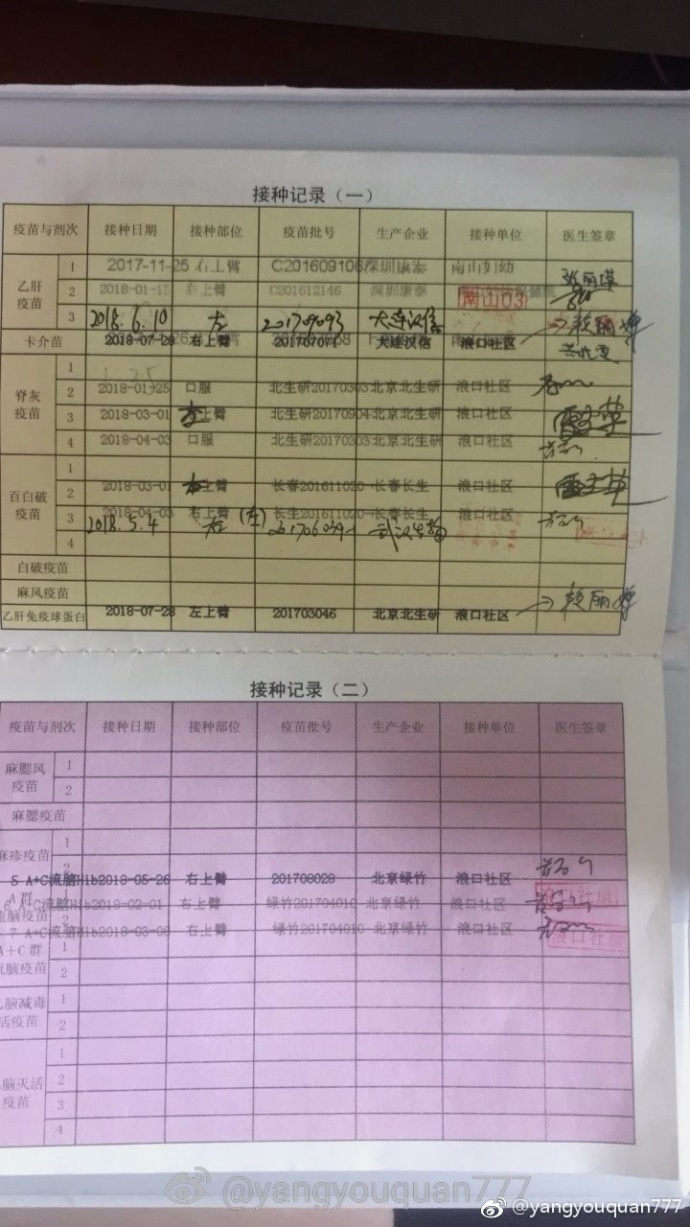 接种记录（一）
疫苗与剂次 接种日期 接种部位 疫苗批号 生产企业 接种单位 医生签章
乙肝疫苗 1 2017-11-25 右上臂 C201609106 深圳康泰 南山妇幼
2 2018-01-15 右上臂 C201612146 深圳康泰 南山03
3 2018.6.10 左 201709093 大连汉信
卡介苗 2018-07-28 右上臂 大连汉信 浪口社区
脊灰疫苗 1
2 2018-01-25 口服 北生研20170303 北京北生研 浪口社区
3 2018-03-01 左上臂 北生研20170904 北京北生研 浪口社区
4 2018-04-03 口服 北生研20170303 北京北生研 浪口社区
百白破疫苗 1
2 2018-03-01 左上臂 长春201611020 长春长生 浪口社区
3 2018-04-03 右上臂 长生201611020 长春长生 浪口社区
2018.5.4 右(左) 武汉生物
4
白破疫苗
麻风疫苗
乙肝免疫球蛋白 2018-07-28 左上臂 201703046 北京北生研 浪口社区
接种记录（二）
疫苗与剂次 接种日期 接种部位 疫苗批号 生产企业 接种单位 医生签章
麻腮风疫苗 1
2
麻腮疫苗
麻疹疫苗 1
2
5 A+C流脑Hib2018-05-26 右上臂 201708028 北京绿竹 浪口社区
A群流脑疫苗
6 A+C流脑Hib2018-02-01 右上臂 绿竹201704010 北京绿竹 浪口社区
2
7 A+C流脑Hib2018-03-08 右上臂 绿竹201704010 北京绿竹 浪口社区
A+C群流脑疫苗 1
2
乙脑减毒活疫苗 1
2
脑灭活疫苗 1
2
3
4
@yangyouquan777
@yangyouquan777